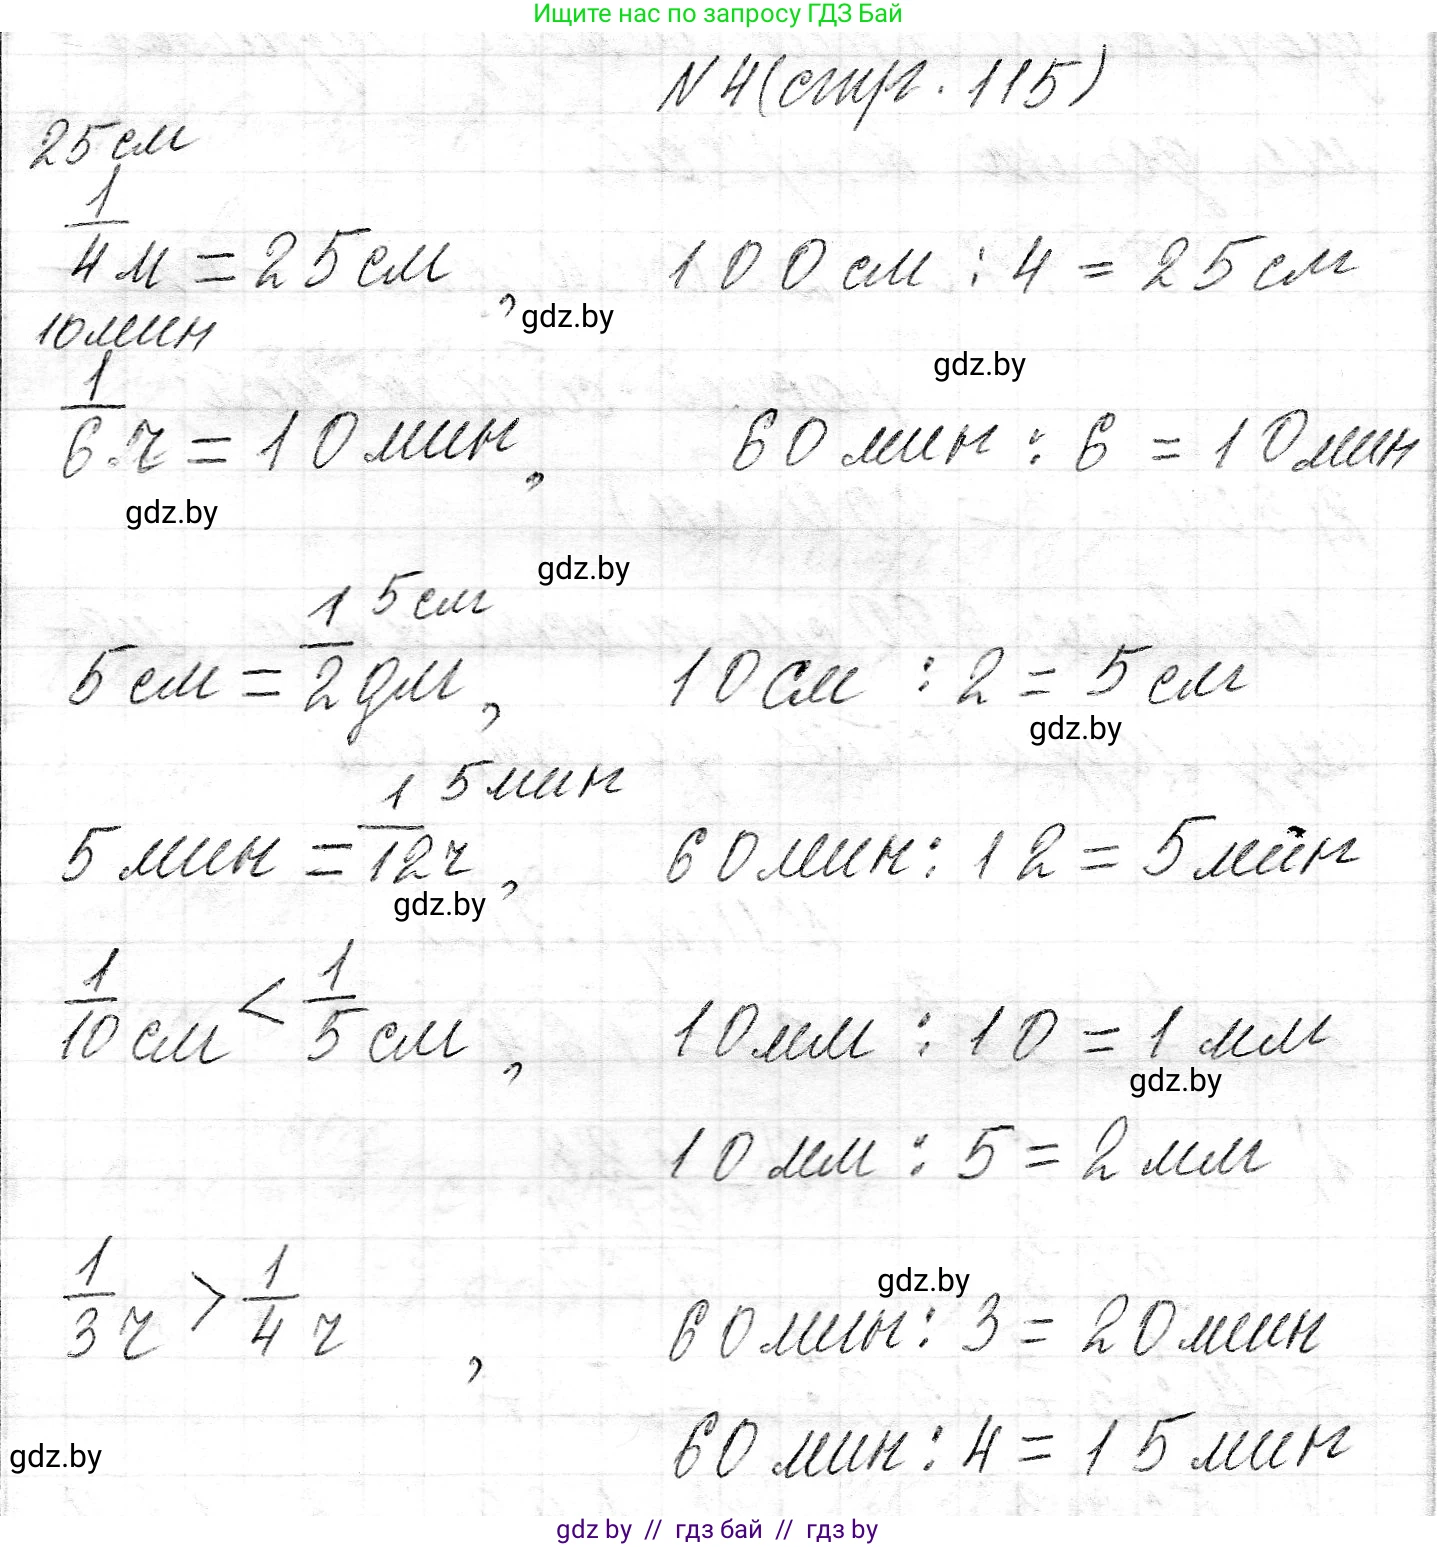 Ищите нас по запросу ГДЗ Бай
N 4 (стр. 115)
25 см
1/4 м = 25 см, 100 см : 4 = 25 см
gdz.by
10 мин
gdz.by
1/6 ч = 10 мин, 60 мин : 6 = 10 мин
gdz.by
gdz.by
5 см
5 см = 1/2 дм, 10 см : 2 = 5 см
gdz.by
5 мин
5 мин = 1/12 ч, 60 мин : 12 = 5 мин
gdz.by
1/10 см < 1/5 см, 10 мм : 10 = 1 мм
gdz.by
10 мм : 5 = 2 мм
gdz.by
1/3 ч > 1/4 ч, 60 мин : 3 = 20 мин
60 мин : 4 = 15 мин
gdz.by
gdz by // гдз бай // гдз by